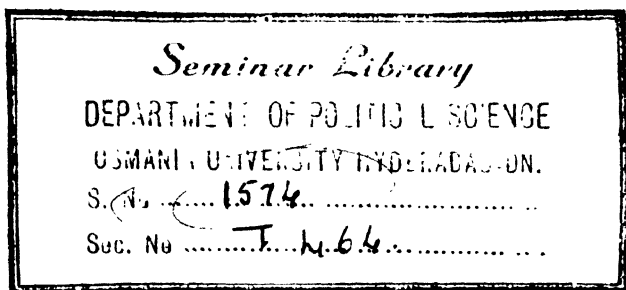 Seminar Library
DEPARTMENT OF POLITICAL SCIENCE
OSMANIA UNIVERSITY HYDERABAD-DN.
S. No ...... 1574 ......................
Suc. No ......... ..............